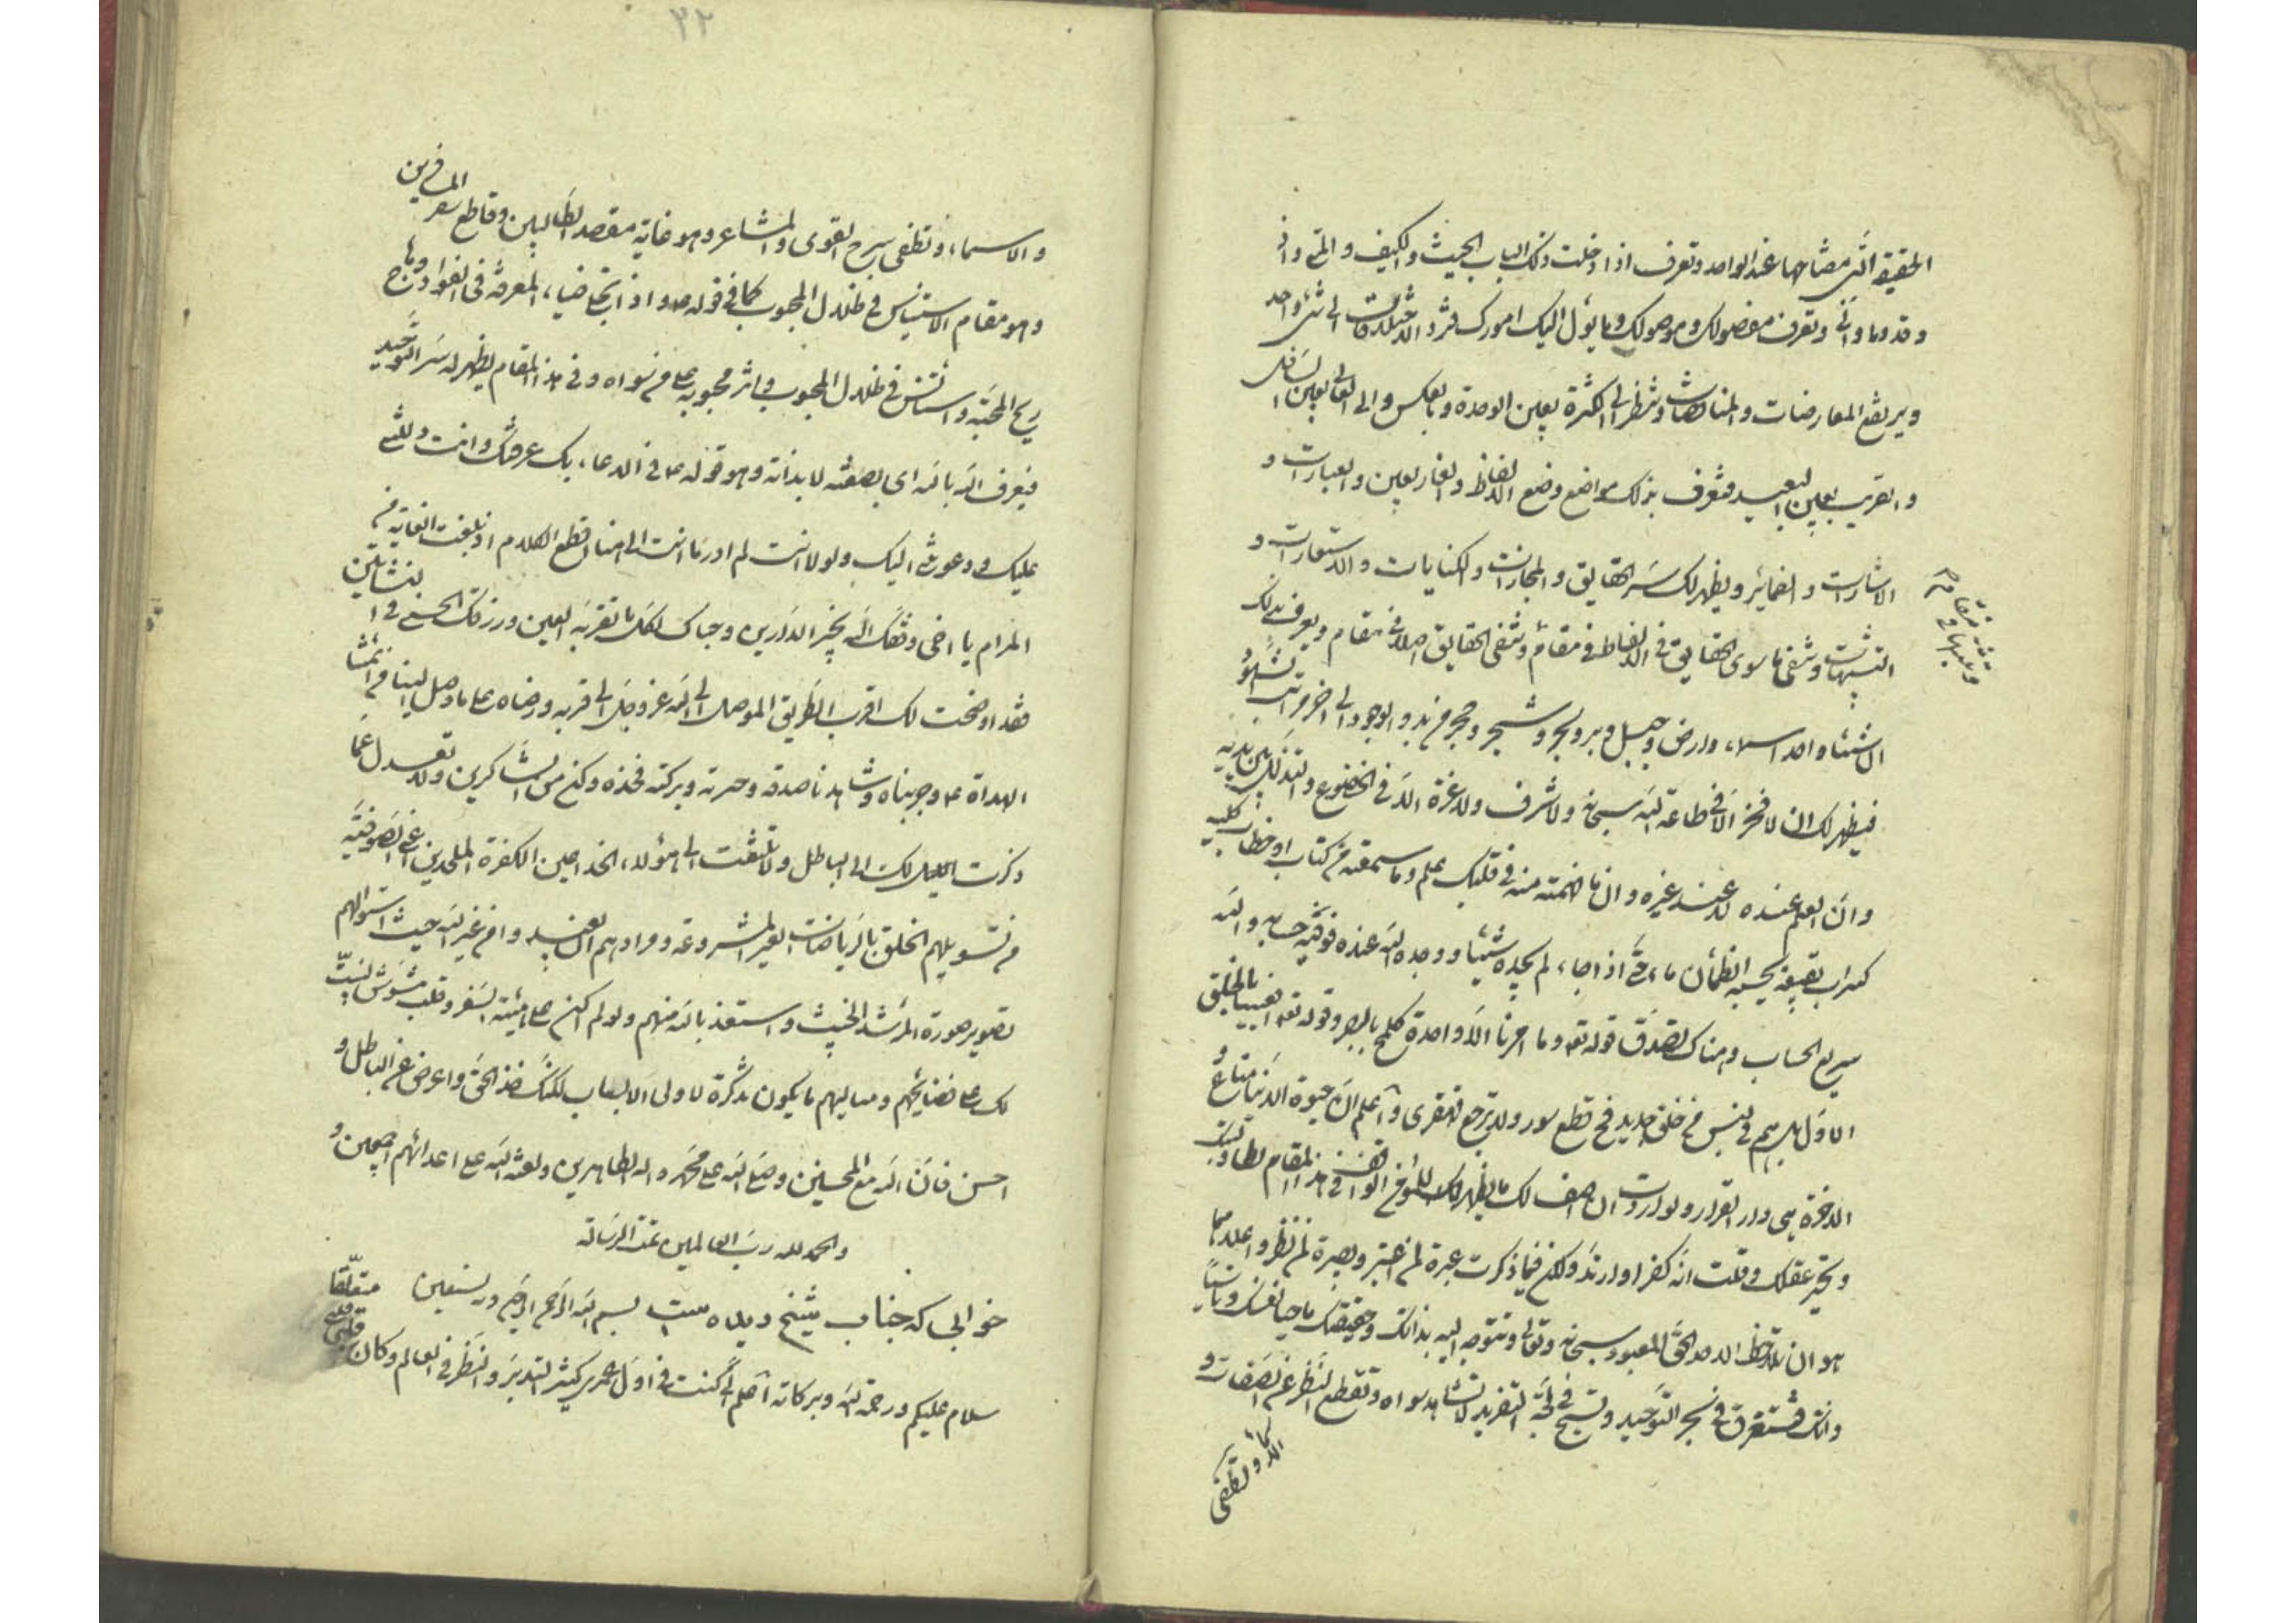 الحقيقة التى مفتاحها عند الواحد وتعرف اذا دخلت ذلك الباب الحيث والكيف والمتى واذ
وقد وما وانى وتعرف مفصولك وموصولك وما يؤل اليك امورك فترد الاختلافات الى شئ واحد
ويرتفع المعارضات والمناقضات وتنظر الى الكثرة بعين الوحدة وبالعكس والى العالى بعين السافل
والقريب بعين البعيد فتعرف بذلك مواضع وضع الالفاظ والعبارات و
الاشارات والضماير ويظهر لك سر الحقايق والمجازات والكنايات والاستعارات و
التشبيهات وتنفى ما سوى الحقايق فى الالفاظ فى مقام وتنفى الحقايق اصلا فى مقام ويعرف بذلك
الاشياء واحد اسماء وارض وجبل وبر وبحر وشجر وحجر من بدو الوجود الى اخر مراتب
فيظهر لك ان لا فخر الا فى طاعة الله سبحانه ولا شرف ولا عزة الا فى الخضوع والتذلل بين يديه
وان العلم عنده لا عند غيره وان ما فهمته منه فى قلبك علم وما سمعته من كتاب او خطاب كله
كسراب بقيعة يحسبه الظمآن ماء حتى اذا جاءه لم يجده شيئا ووجد الله عنده فوفيه حسابه والله
سريع الحساب وهناك تصدق قوله تعه وما امرنا الا واحدة كلمح بالبصر وقوله تعه افعيينا بالخلق
الاول بل هم فى لبس من خلق جديد فح تطع سور ولا ترجع القهقرى واعلم ان الحيوة الدنيا متاع و
الاخرة هى دار القرار ولو اردت ان اصف لك ما يظهر لك الواقف فى هذا المقام لطار لبك
وتحير عقلك وقلت انه كفر او ارتد ولكن فيما ذكرت عبرة لمن اعتبر وبصيرة لمن نظر واعلاها
هو ان تلاحظ الاحد الحق المعبود سبحانه وتعالى وتتوجه اليه بذاتك وحقيقتك ماحيا نفسك وناسيا
ذاتك فتستغرق فى بحر التوحيد وتسبح فى لجة التفريد لا تشاهد سواه وتقطع النظر عن الصفات و
والاسماء وتطفى سرج القوى والمشاعر وهو غاية مقصد الطالبين وقاطع سفر المسافرين
وهو مقام الاستيناس فى ظلال المحبوب كما فى قوله ع واذا تجلى ضياء المعرفة فى الفؤاد وهاج
ريح المحبة واستانس فى ظلال المحبوب واثر محبوبه على من سواه وفى هذا المقام يظهر له سر التوحيد
فيعرف الله بالله اى بصفته لا بذاته وهو قوله ع فى الدعاء بك عرفتك وانت دللتنى
عليك ودعوتنى اليك ولولا انت لم ادر ما انت الى هنا اقطع الكلام اذ بلغت الغاية من
المرام يا اخى وفقك الله بخير الدارين وحباك لكل ما تقر به العين ورزقك الحسنى فى النشاتين
فقد اوضحت لك اقرب الطريق الموصل الى الله عز وجل الى قربه ورضاه على ما وصل الينا من ائمتنا
الهداة ع وجربناه وشاهدنا صدقه وحرمته وبركته فخذه وكن من الشاكرين ولا تعدل عما
ذكرت لك الى الباطل ولا تلتفت الى هؤلاء الخداعين الكفرة الملحدين اعنى الصوفية
من تسويلهم الخلق بالرياضات الغير المشروعة ومرادهم من غير الله حيث
تصوير صورة المرشد الخبيث واستعذ بالله منهم ولو لم اكن على هيئة السفر وقلب مشوش لبينت
لك على فضايحهم ومساليهم ما يكون تذكرة لاولى الالباب لكنك خذ الحق واعرض عن الباطل و
احسن فان الله مع المحسنين وصلى الله على محمد واله الطاهرين ولعنة الله على اعدائهم اجمعين و
والحمد لله رب العالمين تمت الرسالة
خوابى كه جناب شيخ ديده است بسم الله الرحمن الرحيم وبه نستعين
سلام عليكم ورحمة الله وبركاته اعلم انى كنت فى اول عمرى كثير التدبر والنظر فى العالم وكان قلبى متعلقا